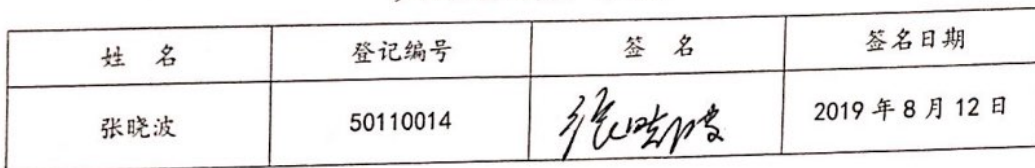 姓 名 登记编号 签 名 签名日期
张晓波 50110014 张晓波 2019年8月12日